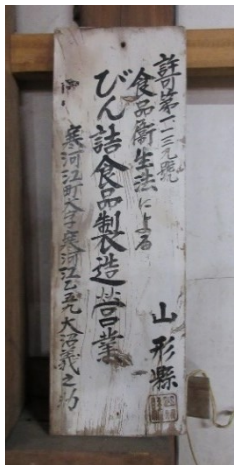 許第一一三九號
食品衞生法による
びん詰食品製造営業
山形縣
寒河江町大字寒河江乙五九 大沼義之助